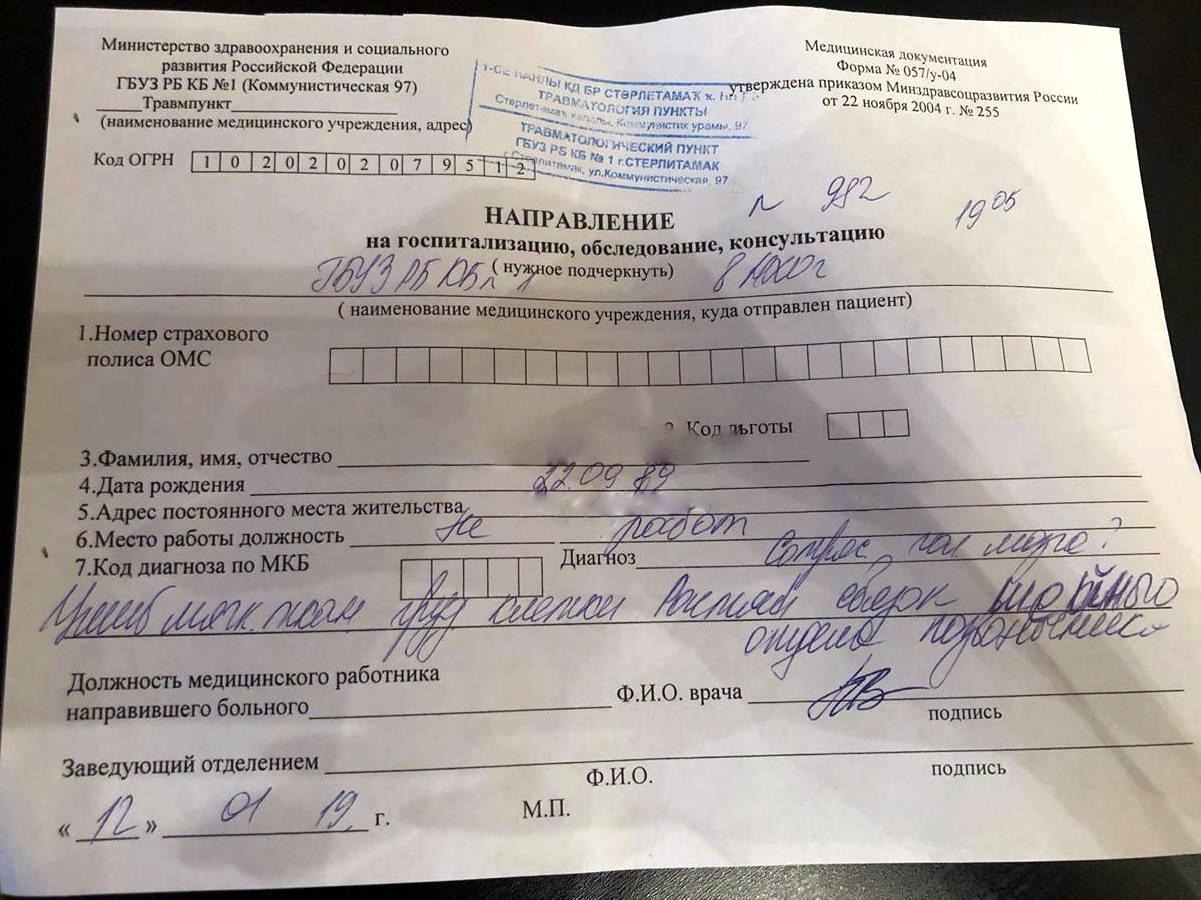 Министерство здравоохранения и социального
развития Российской Федерации
ГБУЗ РБ КБ №1 (Коммунистическая 97)
Травмпункт
(наименование медицинского учреждения, адрес)
Код ОГРН 1020202079512
Медицинская документация
Форма № 057/у-04
утверждена приказом Минздравсоцразвития России
от 22 ноября 2004 г. № 255
КБ БР СТӘРЛЕТАМАҠ ҡ.
ТРАВМАТОЛОГИЯ ПУНКТЫ
Стәрлетамаҡ ҡалаһы, Коммунистик урамы, 97
ТРАВМАТОЛОГИЧЕСКИЙ ПУНКТ
ГБУЗ РБ КБ № 1 г.СТЕРЛИТАМАК
г. Стерлитамак, ул.Коммунистическая, 97
N 982 19 05
НАПРАВЛЕНИЕ
на госпитализацию, обследование, консультацию
( нужное подчеркнуть)
ГБУЗ РБ КБ N 1
( наименование медицинского учреждения, куда отправлен пациент)
1.Номер страхового
полиса ОМС
2. Код льготы
3.Фамилия, имя, отчество
4.Дата рождения 22 09 89
5.Адрес постоянного места жительства
6.Место работы должность не работ
7.Код диагноза по МКБ Диагноз Сотряс гол мозга?
Ушиб мягк. ткан груд клетки Растяж связок шейного
отдела позвоночника
Должность медицинского работника
направившего больного Ф.И.О. врача
подпись
Заведующий отделением
Ф.И.О. подпись
« 12 » 01 19 г. М.П.